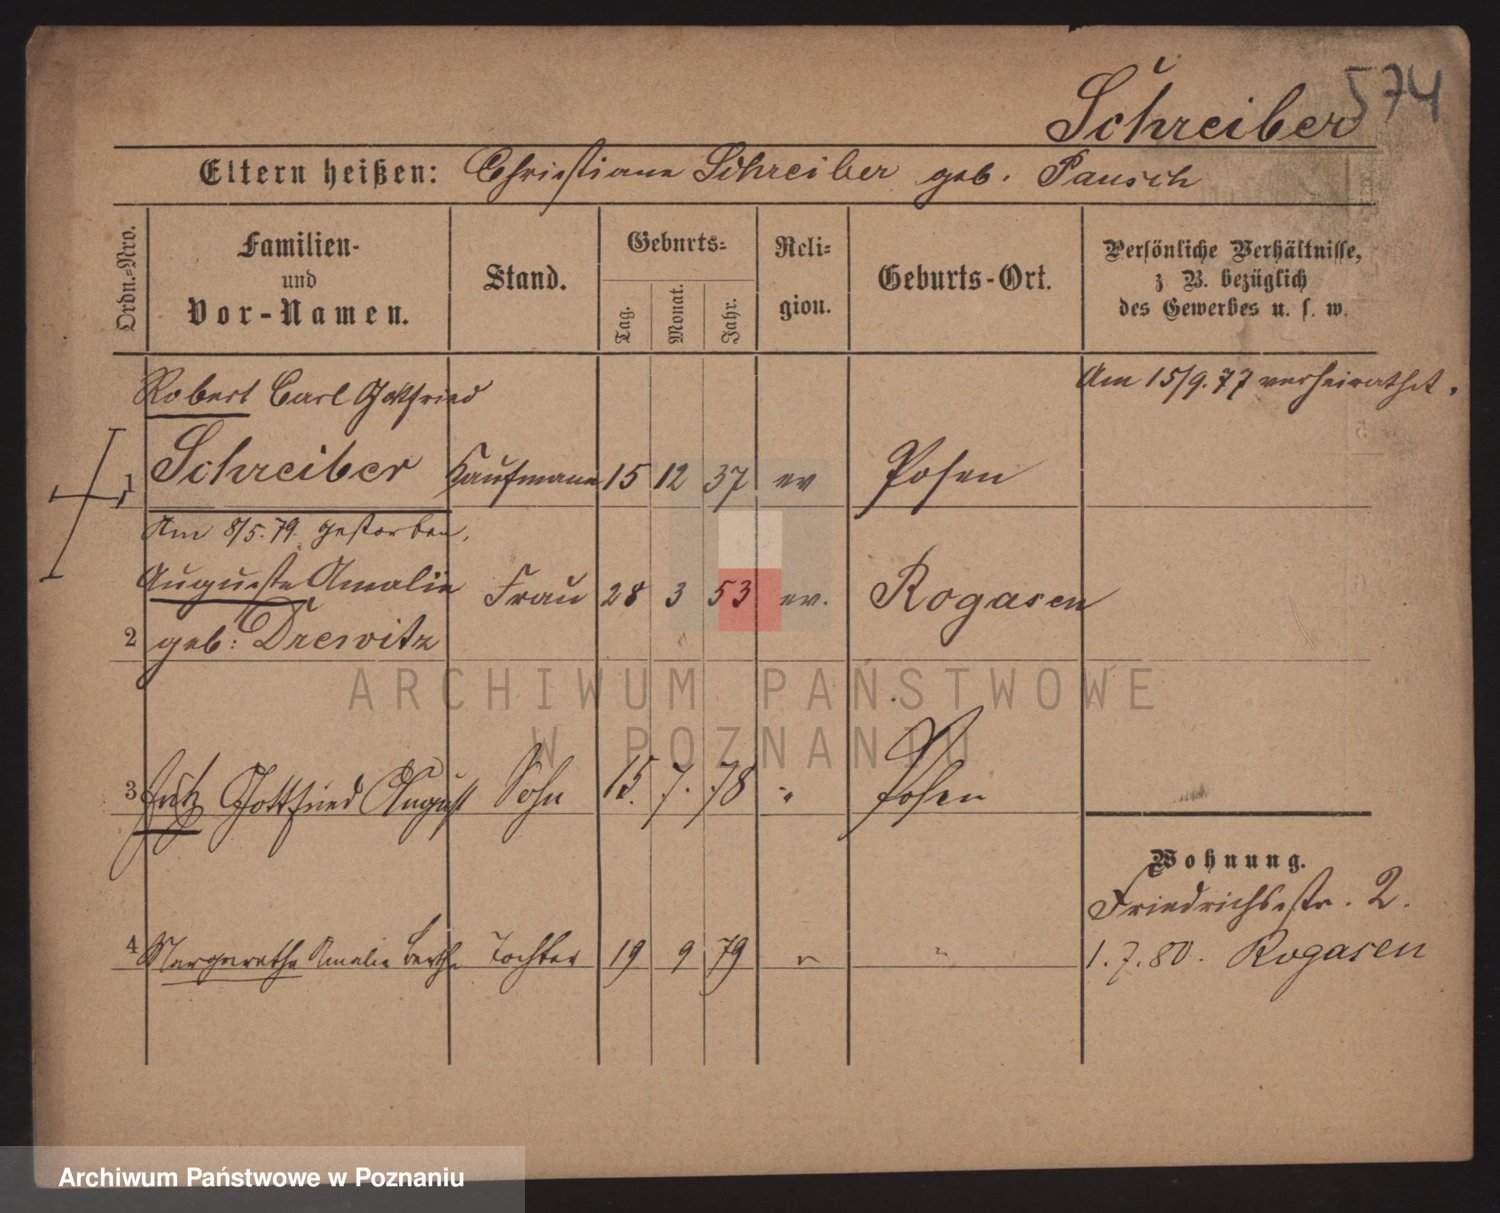 574
Schreiber
Eltern heißen: Christiane Schreiber geb. Pausch
Ordn.-Nro.
Familien-
und
Vor-Namen.
Stand.
Geburts-
Tag.
Monat.
Jahr.
Reli-
gion.
Geburts-Ort.
Persönliche Verhältnisse,
z. B. bezüglich
des Gewerbes u. s. w.
Robert Carl Gottfried
Am 15/9.77 verheirathet.
1 Schreiber Kaufmann 15 12 37 ev Posen
Am 8/5.79 gestorben.
Auguste Amalie Frau 28 3 53 ev. Rogasen
2 geb: Drewitz
ARCHIWUM PAŃSTWOWE
W POZNANIU
3 Fritz Gottfried August Sohn 15. 7. 78 " Posen
Wohnung.
Friedrichsstr. 2.
4 Margarethe Amalie Bertha Tochter 19 9 79 " "
1.7.80. Rogasen
Archiwum Państwowe w Poznaniu